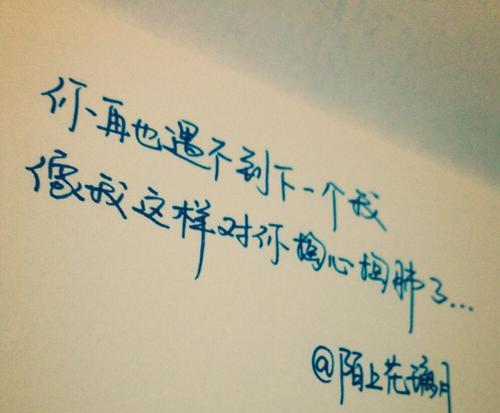 你再也遇不到下一个我
像我这样对你掏心掏肺了...
@陌上花璃月